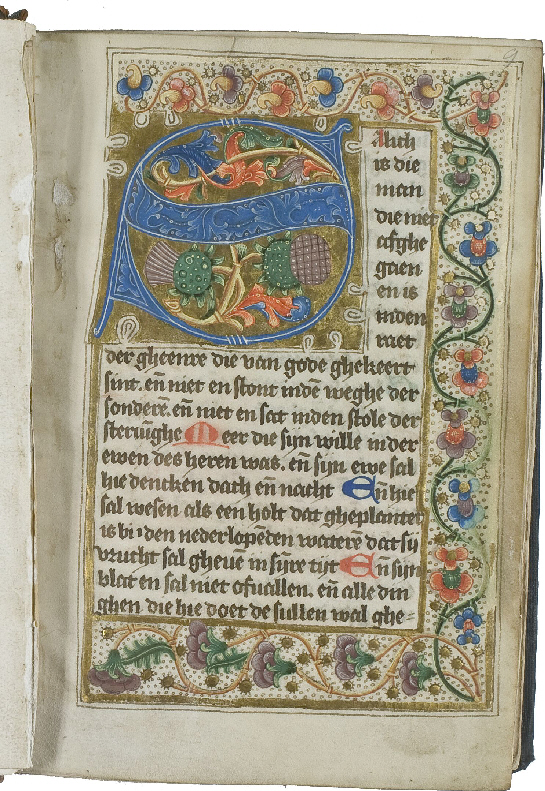 9
S Alich
is die
man
die niet
afghe
gaen
en is
inden
raet
der gheenre die van gode ghekeert
sint. en̄ niet en stont indē weghe der
sonderē. en̄ niet en sat inden stole der
steruīghe Meer die sijn wille in der
ewen des heren was. en̄ sijn ewe sal
hie dencken dach en̄ nacht En̄ hie
sal wesen als een holt dat gheplantet
is bi den nederlopēden waterē dat sij
vrucht sal gheuē in sijre tijt En̄ sijn
blat en sal niet ofuallen. en̄ alle din
ghen die hie doet de sullen wal ghe-